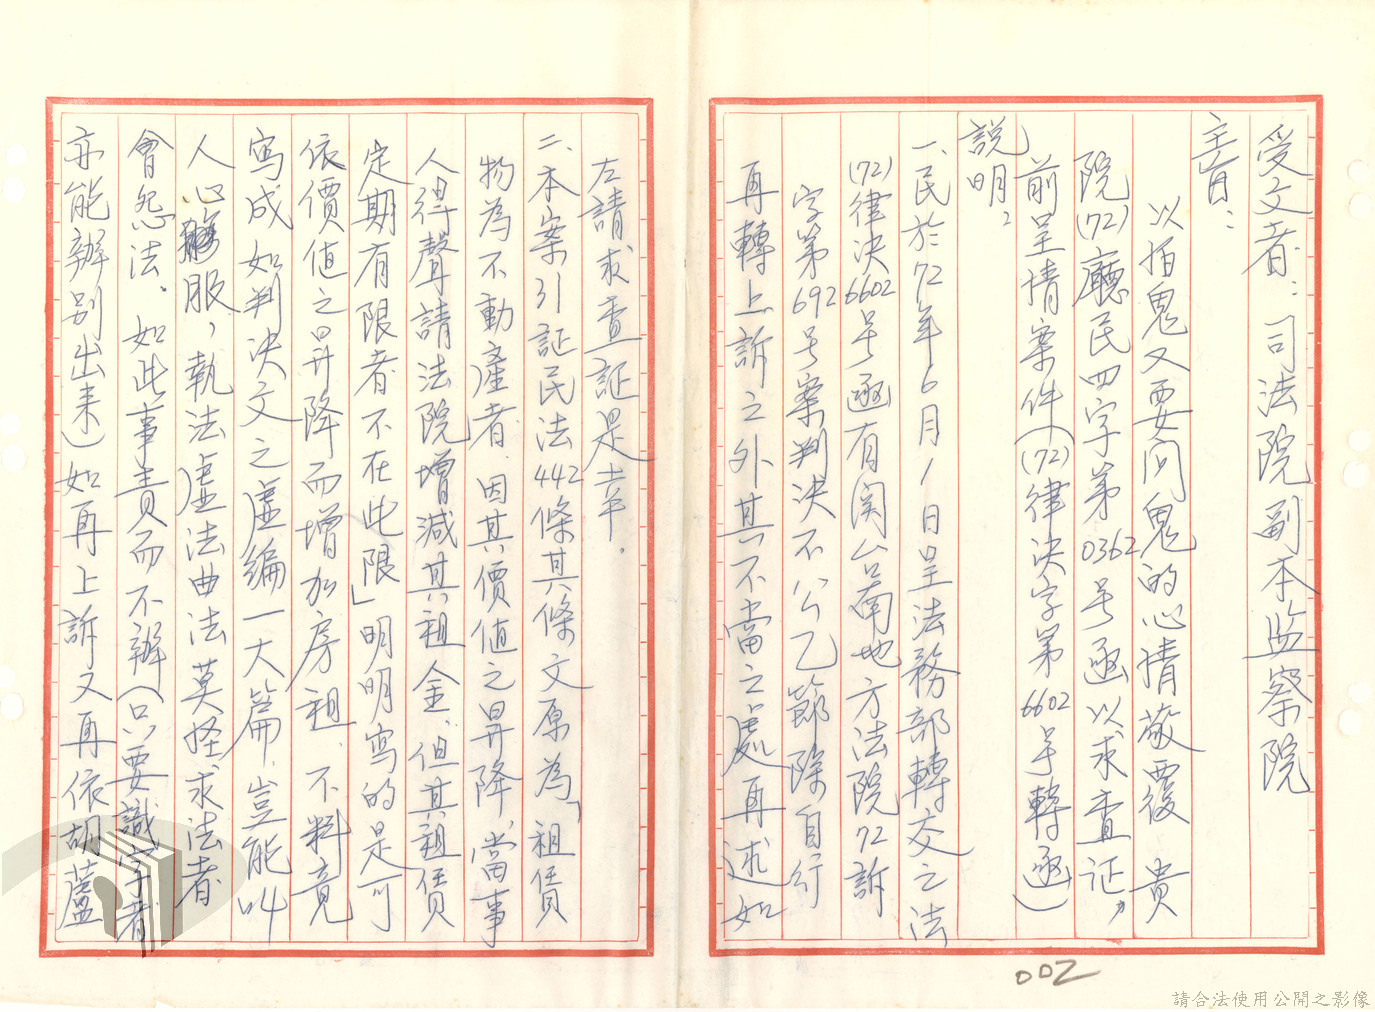 受文者：司法院副本監察院
主旨：
以怕鬼又要问鬼的心情敬覆　貴
院(72)廳民四字第0362号函以求查证，
前呈情案件(72)律決字第6602号轉函)
説明：
一、民於72年6月1日呈法務部轉交之法
(72)律決6602号函有関台南地方法院72訴
字第692号案判決不公乙節除自行
再轉上訴之外其不當之處再述如
左請求查証是幸.
二、本案引証民法442條其條文原為「租賃
物為不動產者.因其價值之昇降,當事
人得聲請法院增減其租金.但其租賃
定期有限者不在此限」明明寫的是可
依價值之昇降而增加房租.不料竟
寫成如判決文之虛編一大篇.豈能叫
人心服，執法虛法曲法莫怪求法者
會怨法.如此事責而不辦(只要識字者
亦能辦別出来)如再上訴又再依胡蘆
002
請合法使用公開之影像